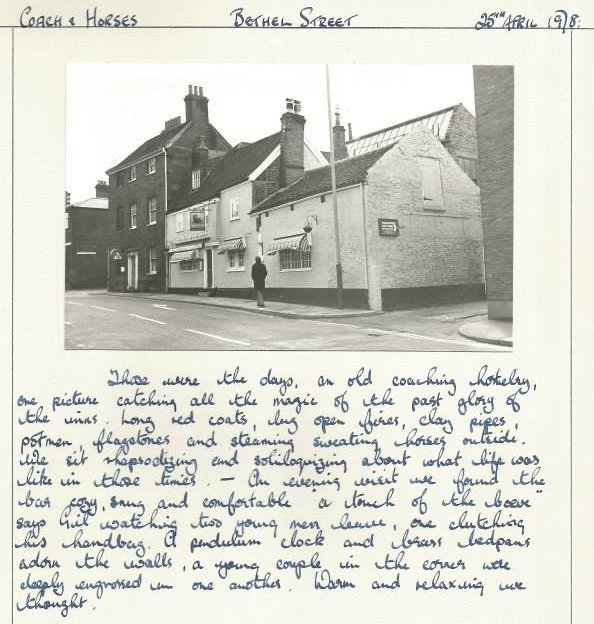 COACH & HORSES BETHEL STREET 25TH APRIL 1978.
Those were the days, an old coaching hostelry,
one picture catching all the magic of the past glory of
the inns. Long red coats, big open fires, clay pipes,
potmen, flagstones and steaming sweating horses outside.
We sit rhapsodizing and soliloquizing about what life was
like in those times. — An evening visit we found the
bar cozy, snug and comfortable "a touch of the"
says watching two young men leave, one clutching
his handbag. A pendulum clock and brass bedpans
adorn the walls, a young couple in the corner were
deeply engrossed in one another. Warm and relaxing we
thought.